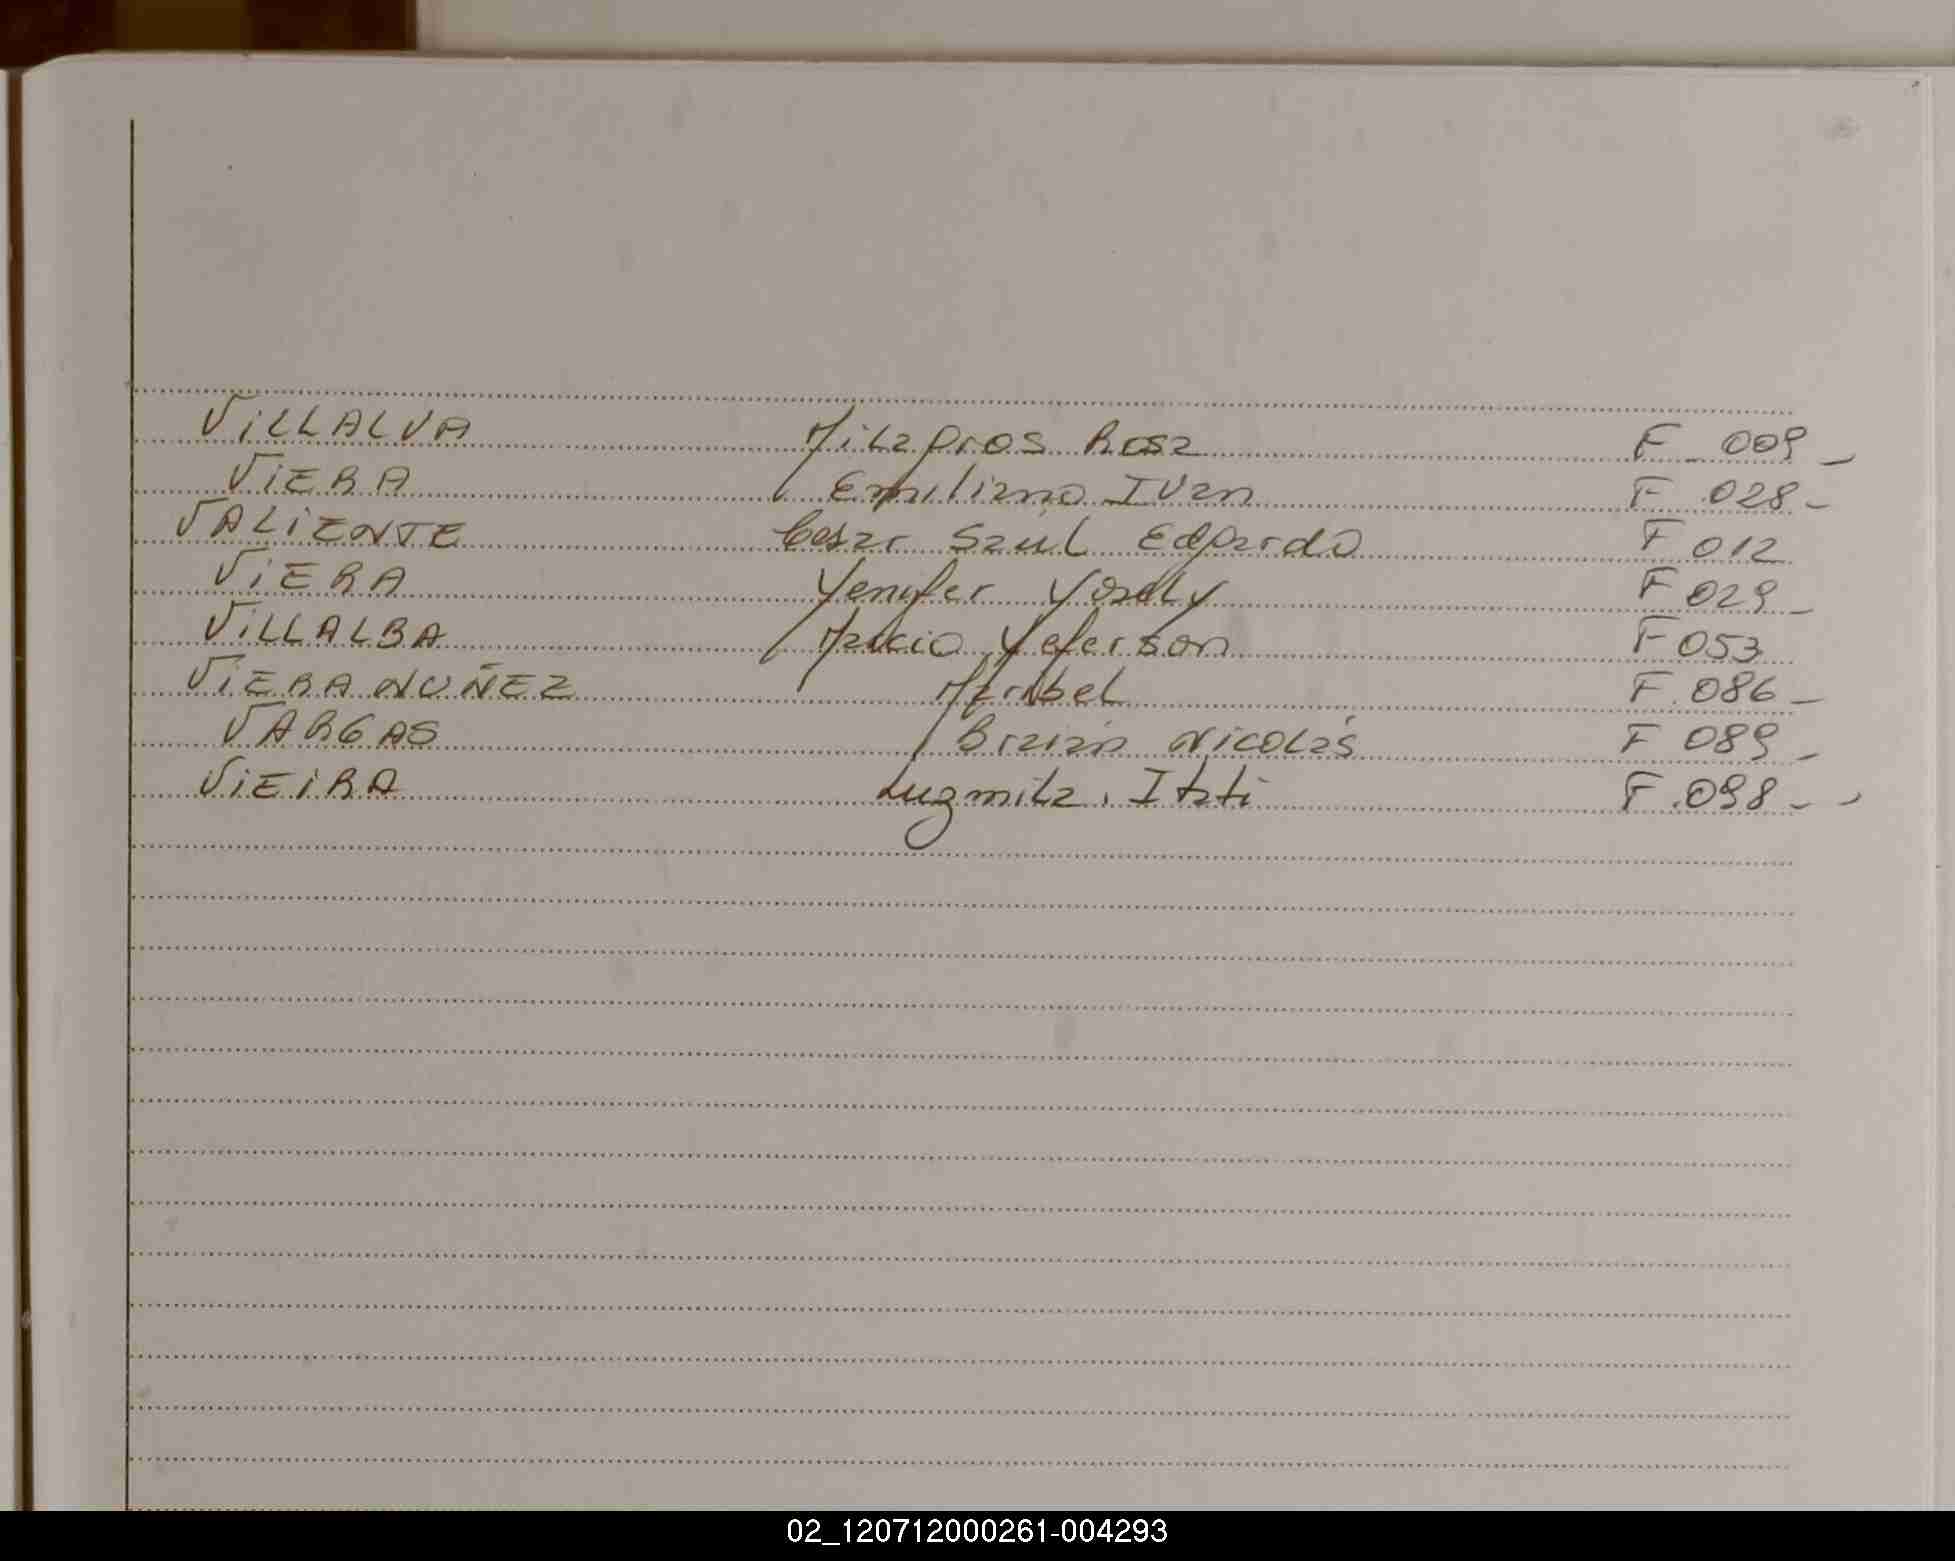 VILLALVA Milagros Rosa F_009_
VIERA Emiliano Ivan F.028-
VALIENTE Cesar Saúl Edgardo F 012
VIERA Yenyfer Yosely F 029_
VILLALBA Marcio Yeferson F 053
VIERA NUÑEZ Maribel F.086-
VARGAS Braian Nicolás F 089_
VIEIRA Luzmila Itati F.098--
02_120712000261-004293